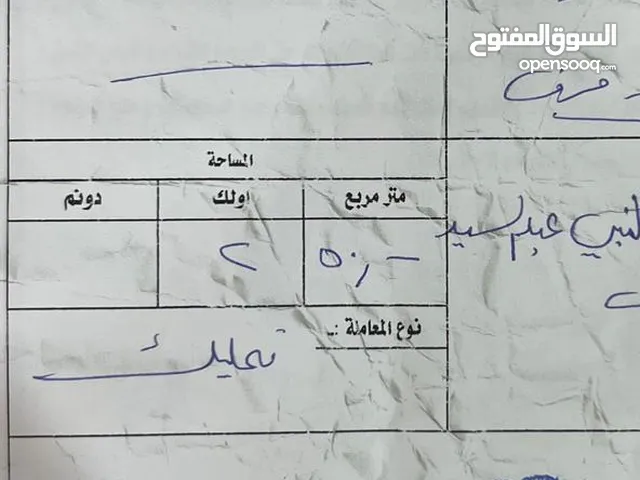 السوق المفتوح
opensooq.com
المساحة
متر مربع اولك دونم
النبي عبد السيد
٥٠٫- ٢
نوع المعاملة :ـ
تمليك